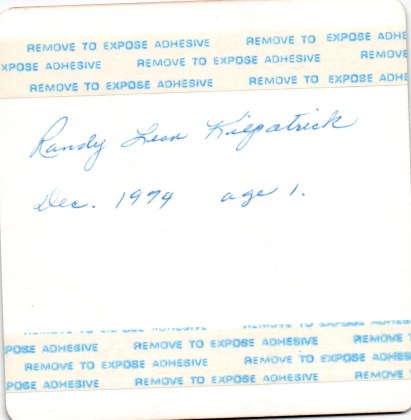 REMOVE TO EXPOSE ADHESIVE REMOVE TO EXPOSE ADHE
XPOSE ADHESIVE REMOVE TO EXPOSE ADHESIVE REMOVE
REMOVE TO EXPOSE ADHESIVE REMOVE TO EXPOSE ADH
Randy Leon Kilpatrick
Dec. 1974 age 1.
REMOVE TO EXPOSE ADHESIVE REMOVE TO EXPOSE ADHESIVE
POSE ADHESIVE REMOVE TO EXPOSE ADHESIVE REMOVE T
REMOVE TO EXPOSE ADHESIVE REMOVE TO EXPOSE ADHES
POSE ADHESIVE REMOVE TO EXPOSE ADHESIVE REMOVE T